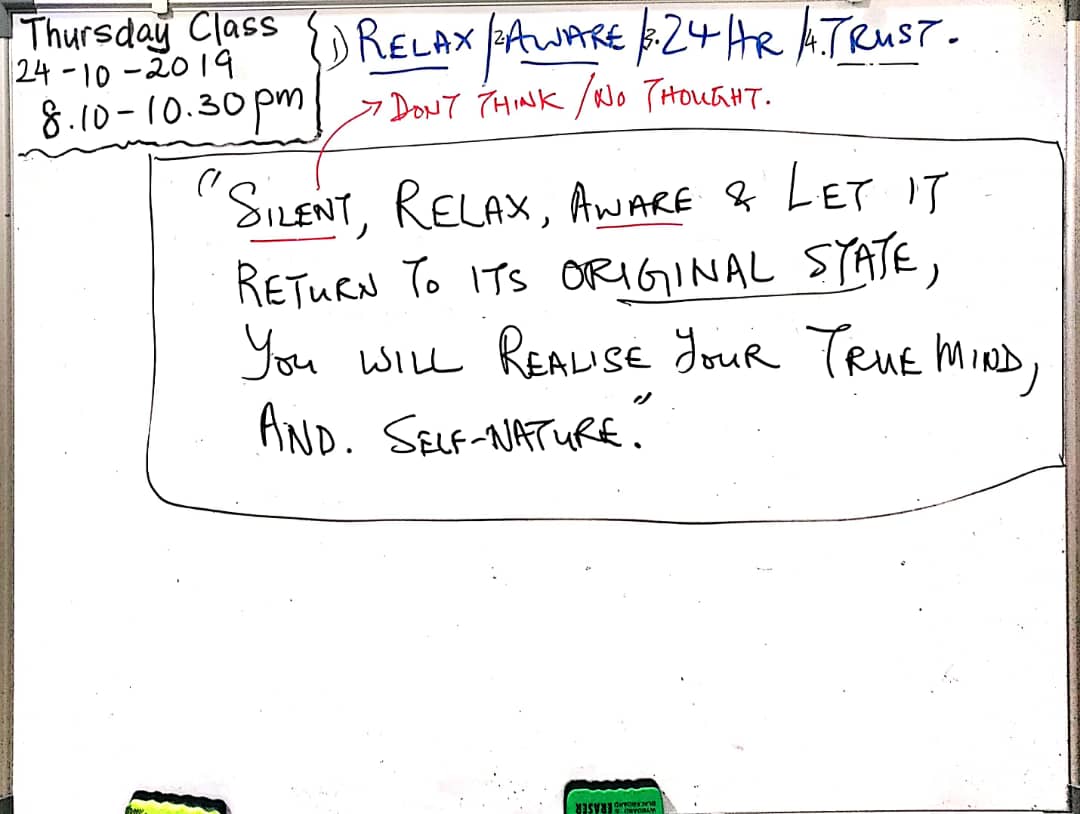 Thursday Class
24-10-2019
8.10-10.30pm
1) RELAX /2.AWARE /3.24 HR /4.TRUST.
→ DONT THINK /NO THOUGHT.
"SILENT, RELAX, AWARE & LET IT
RETURN TO ITS ORIGINAL STATE,
YOU WILL REALISE YOUR TRUE MIND,
AND. SELF-NATURE."
ERASER